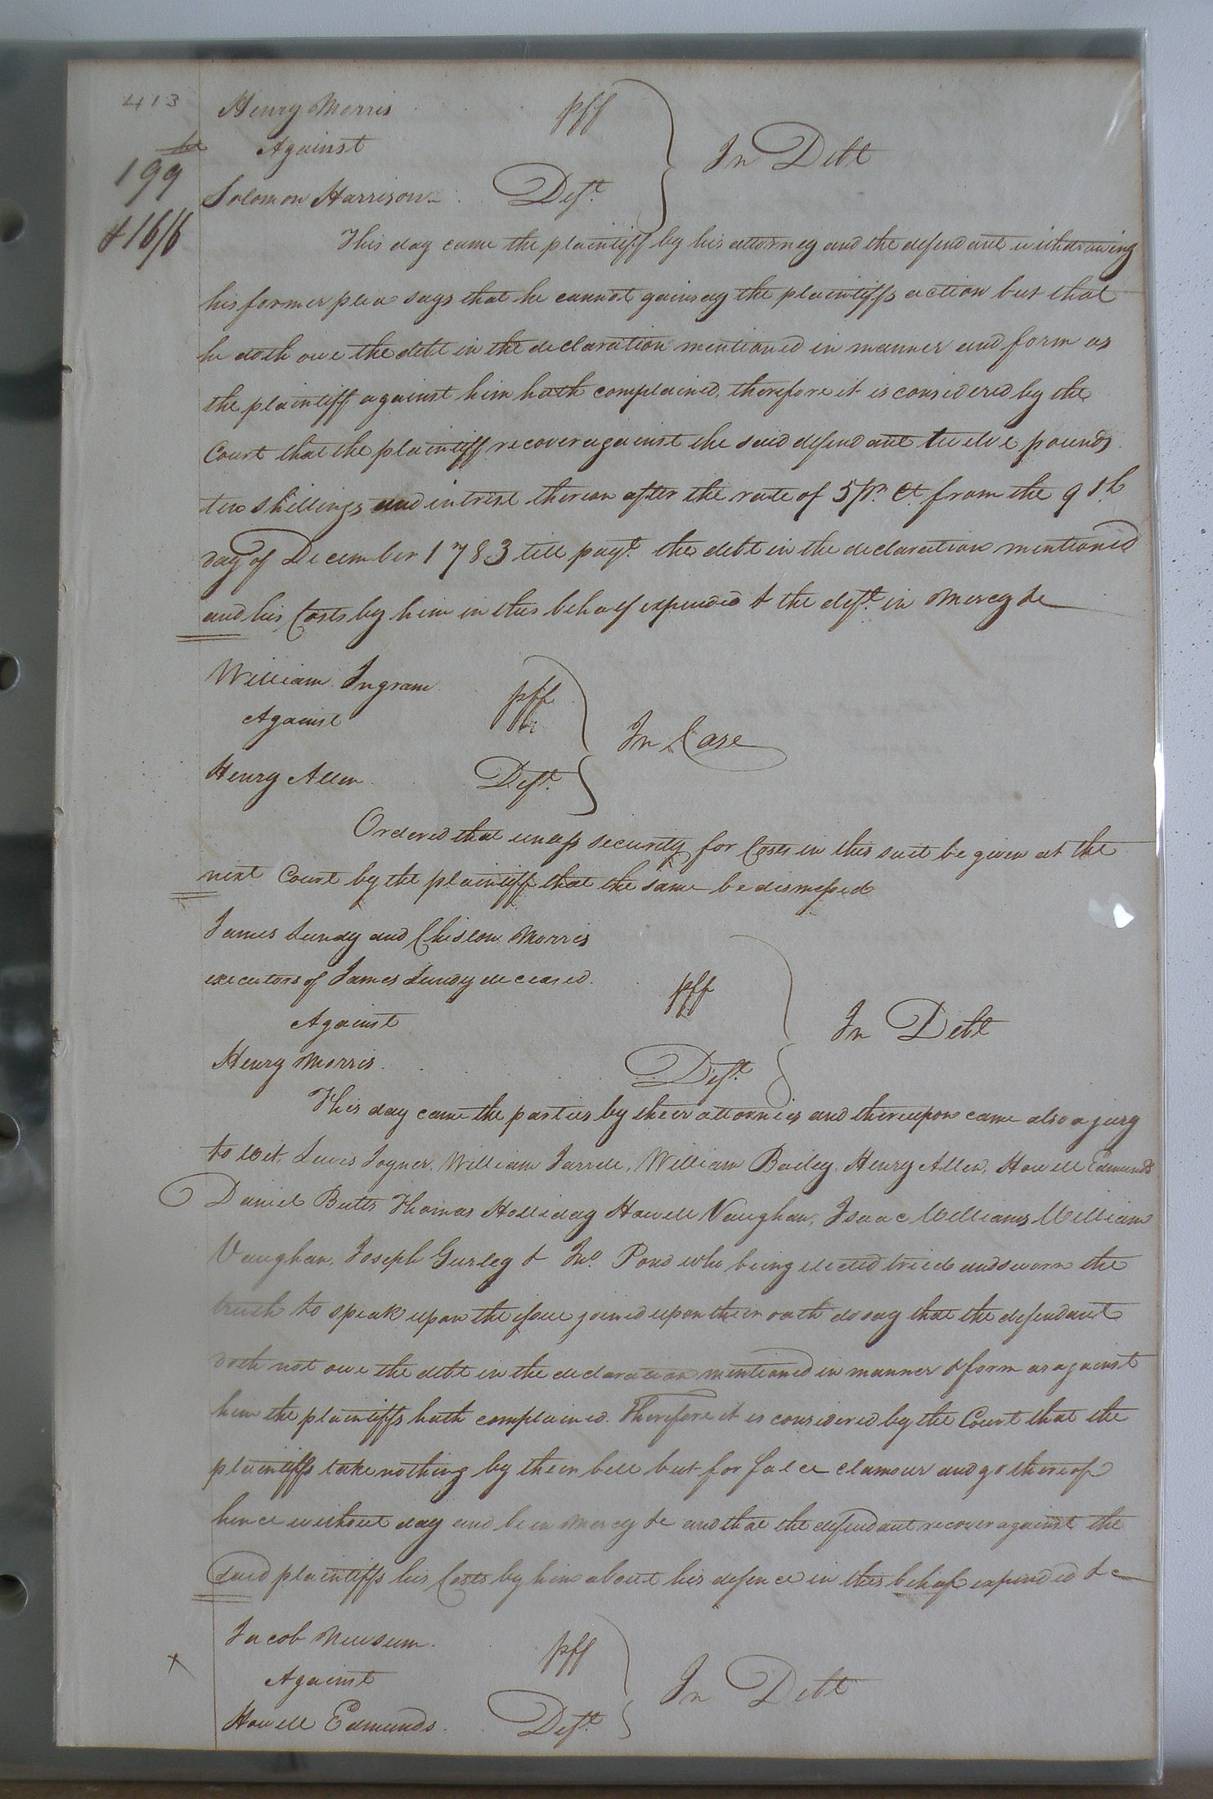 413
Henry Morris pff
Against
Solomon Harrison Deft.
In Debt
199
& 16/6
This day came the plaintiff by his attorney and the defendant withdrawing
his former plea says that he cannot gainsay the plaintiffs action but that
he doth owe the debt in the declaration mentioned in manner and form as
the plaintiff against him hath complained, therefore it is considered by the
Court that the plaintiff recover against the said defendant twelve pounds
shillings and intrest thereon after the rate of 5 pr. Ct. from the 9th
day of December 1783 till payt. the debt in the declaration mentioned
and his Costs by him in this behalf expended & the deft. in Mercy &c
William Ingram pff
Against
Henry Allen Deft.
In Case
Ordered that unless security for Costs in this suit be given at the
next Court by the plaintiff that the same be dismissed
James Lundy and Chislon Morris
executors of James Lundy deceased. pff
Against
Henry Morris. Deft.
In Debt
This day came the parties by their attornies and thereupon came also a jury
to wit, Lewis Joyner, William Jarrell, William Bailey, Henry Allen, Howell Edmunds
Daniel Butts Thomas Holliday Howell Vaughan, Isaac Williams William
Vaughan, Joseph Gurley & Jno. Pond who being elected tried and sworn the
truth to speak upon the issue joined upon their oath do say that the defendant
doth not owe the debt in the declaration mentioned in manner & form as against
him the plaintiffs hath complained. Therefore it is considered by the Court that the
plaintiffs take nothing by their bill but for false clamour and go thereof
hence without day and be in Mercy &c and that the defendant recover against the
said plaintiffs his Costs by him about his defence in this behalf expended &c
Jacob Newsum. pff
Against
Howell Edmunds. Deft.
In Debt